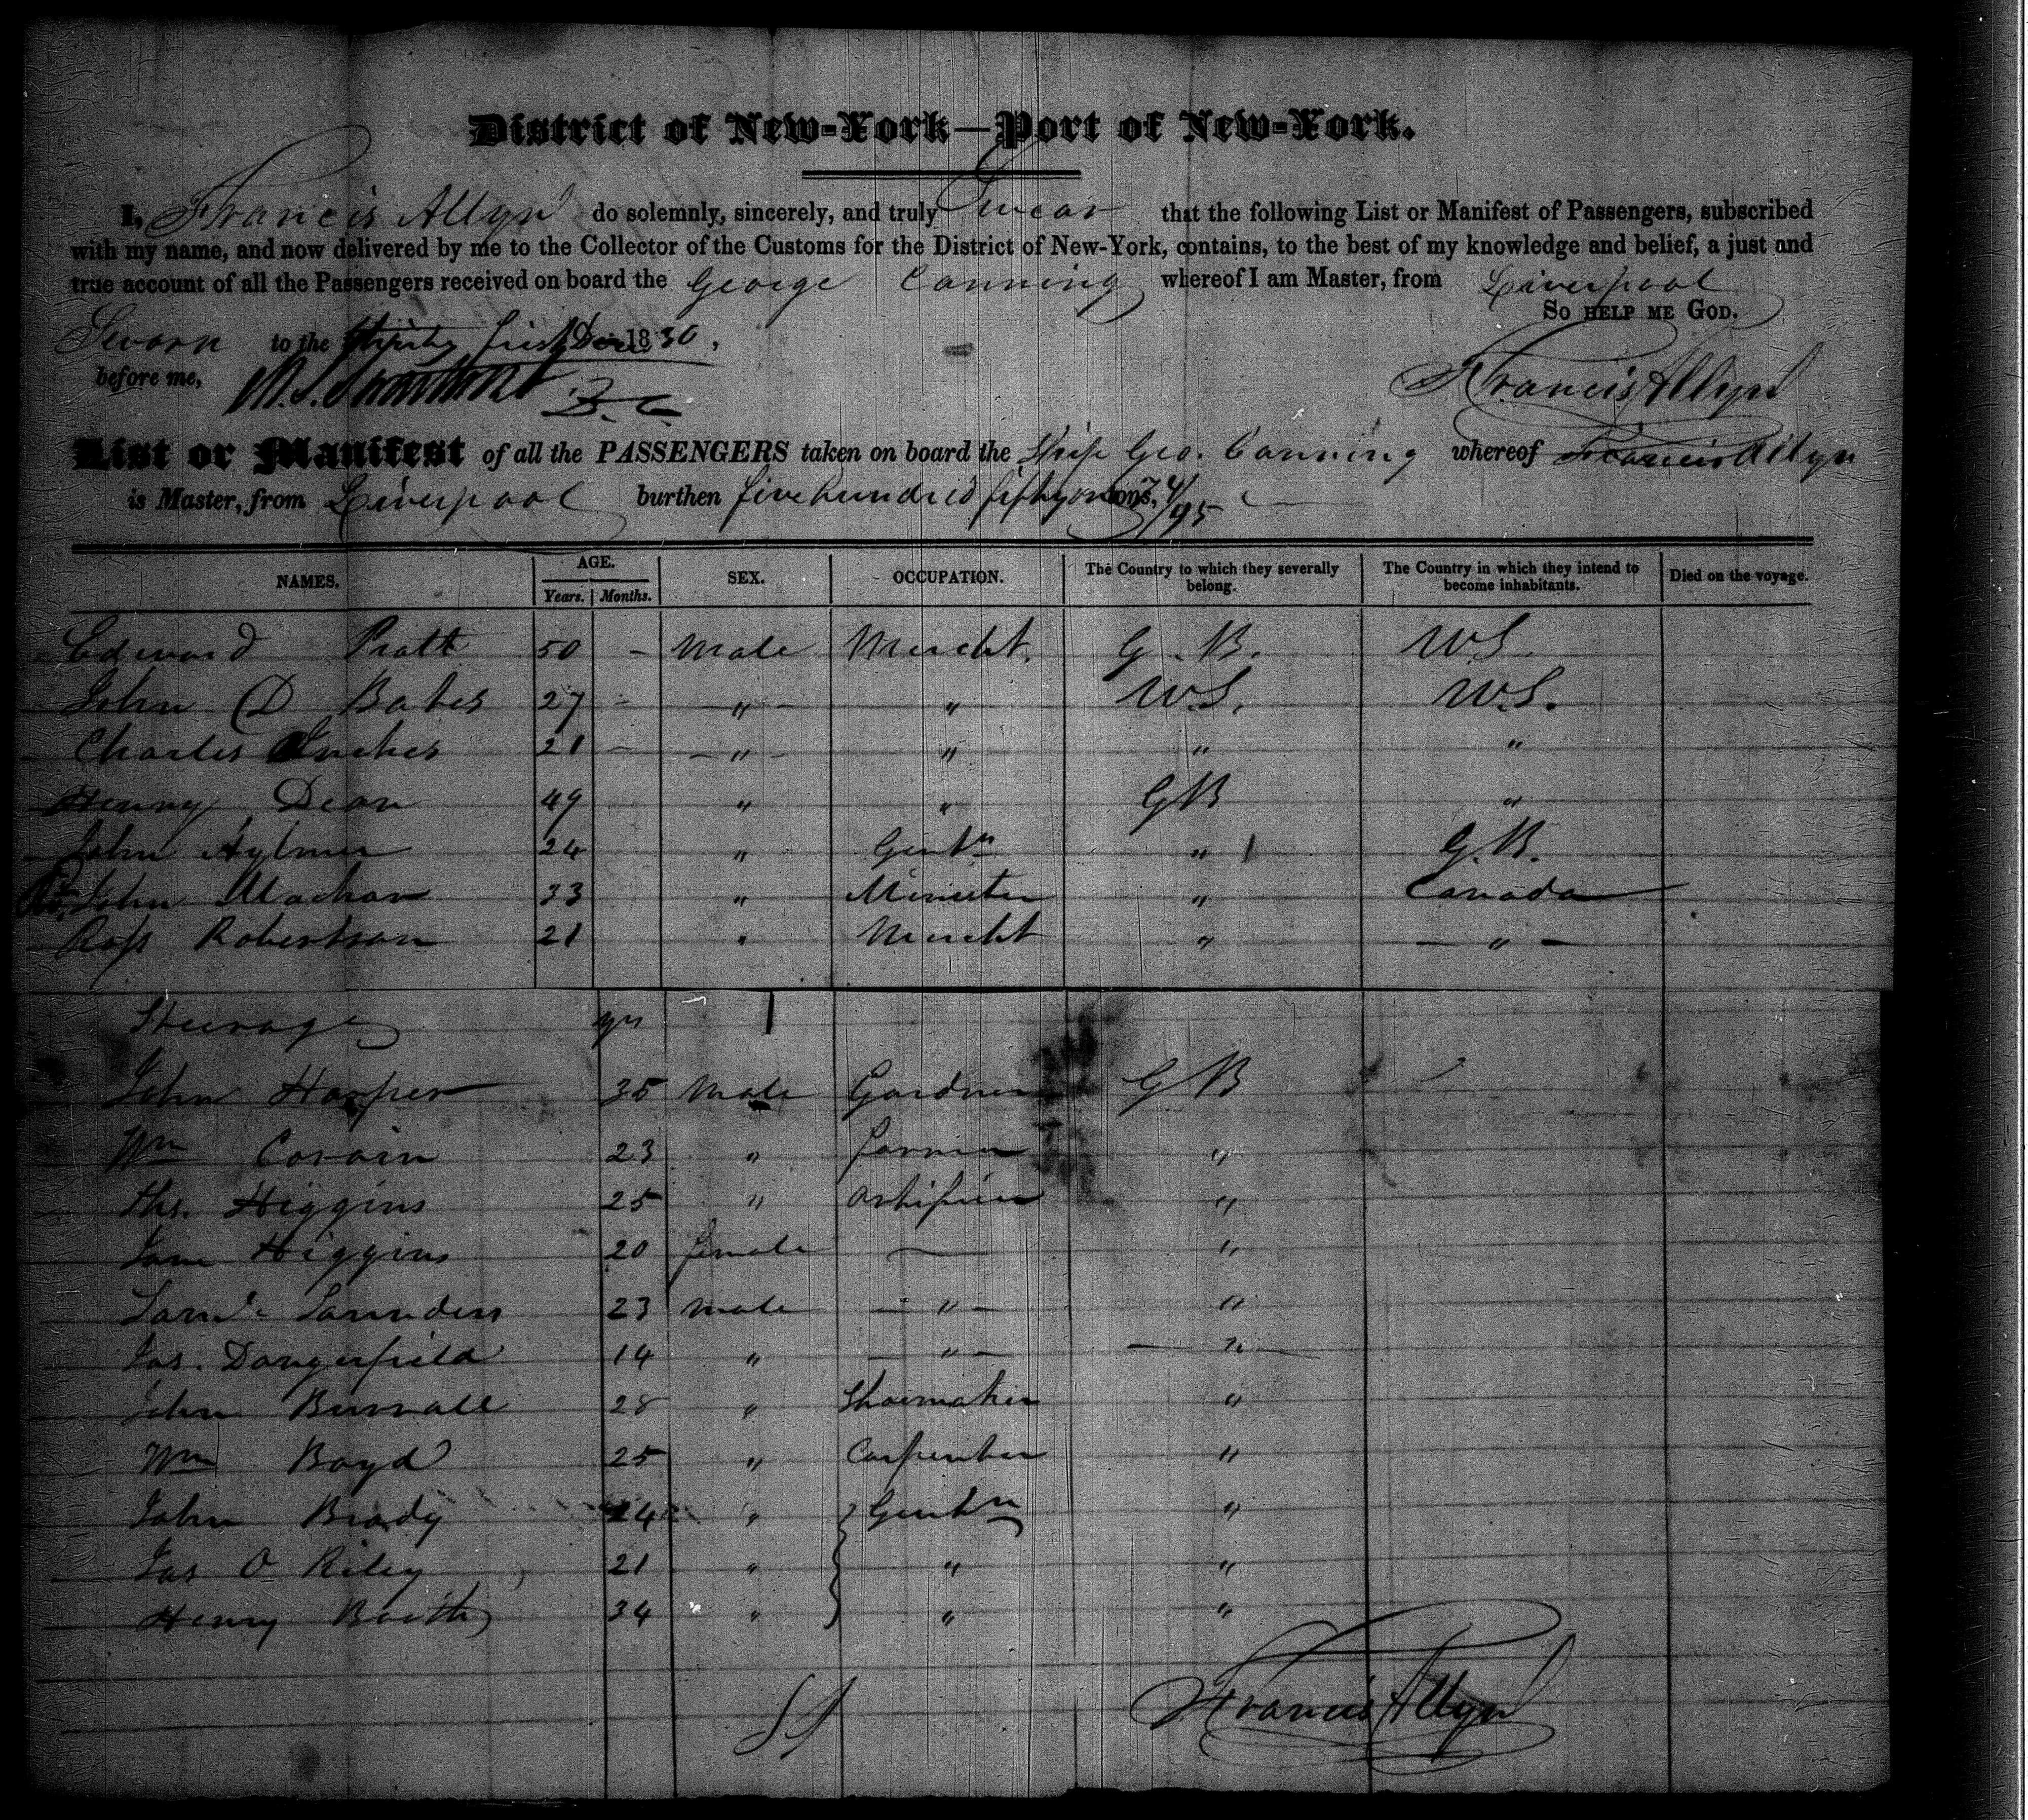 District of New-York—Port of New-York.
I, Francis Allyn do solemnly, sincerely, and truly Swear that the following List or Manifest of Passengers, subscribed
with my name, and now delivered by me to the Collector of the Customs for the District of New-York, contains, to the best of my knowledge and belief, a just and
true account of all the Passengers received on board the George Canning whereof I am Master, from Liverpool
So help me God.
Sworn to the thirty first Dec 1830,
before me, Francis Allyn
D. C.
List or Manifest of all the PASSENGERS taken on board the Ship Geo. Canning whereof Francis Allyn
is Master, from Liverpool burthen five hundred fifty one tons, 4/95
NAMES. AGE. Years. Months. SEX. OCCUPATION. The Country to which they severally belong. The Country in which they intend to become inhabitants. Died on the voyage.
Edward Pratt 50 - Male Mercht. G. B. U.S.
John D Bates 27 - " " U.S. U.S.
Charles Inches 21 - " " " "
Henry Dean 49 " " GB "
John Aylmer 24 " Gentn " G.B.
Rev. John Machar 33 " Minister " Canada
Ross Robertson 21 " Mercht " "
Steerage yrs
John Harper 35 Male Gardner G B
Wm 23 " farmer "
Ths. Higgins 25 " Artificer "
Jane Higgins 20 female — "
Saml Saunders 23 male " "
Jas. Dangerfield 14 " " "
John 28 " Shoemaker "
Wm Boyd 25 " Carpenter "
John Brady 24 " Gentn "
Jas O Riley 21 " " "
Henry Booth 34 " " "
Francis Allyn